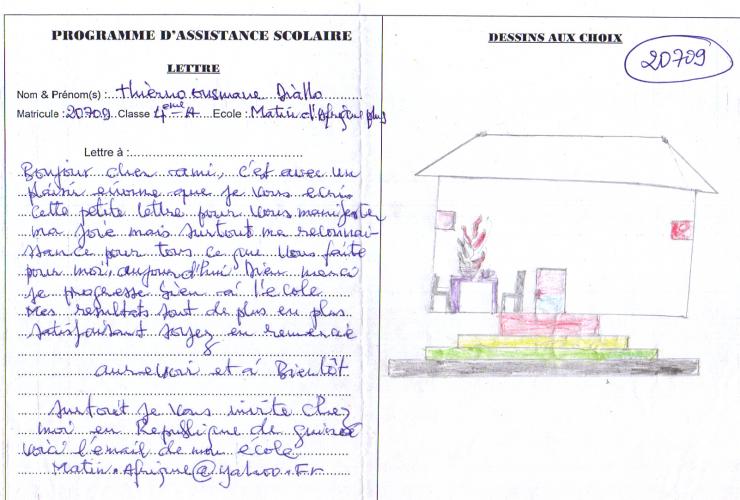 PROGRAMME D'ASSISTANCE SCOLAIRE
LETTRE
Nom & Prénom(s) : Thierno Ousmane Diallo
Matricule : 20709 Classe 4ème A Ecole : Matin d'Afrique plus
Lettre à :
Bonjour cher ami, c'est avec un
plaisir énorme que je vous ecris
cette petite lettre pour vous manifester
ma joie mais surtout ma reconnai-
ssance pour tous ce que vous faite
pour moi, aujourd'hui Dieu merci
je progresse bien à l'ecole
Mes resultats sont de plus en plus
satisfaisant soyez en remercié
aurevoir et à Bientôt
surtout je vous invite chez
moi en Republique de guinée
voici l'émail de mon école
Matin.Afrique@yahoo.Fr
DESSINS AUX CHOIX
20709